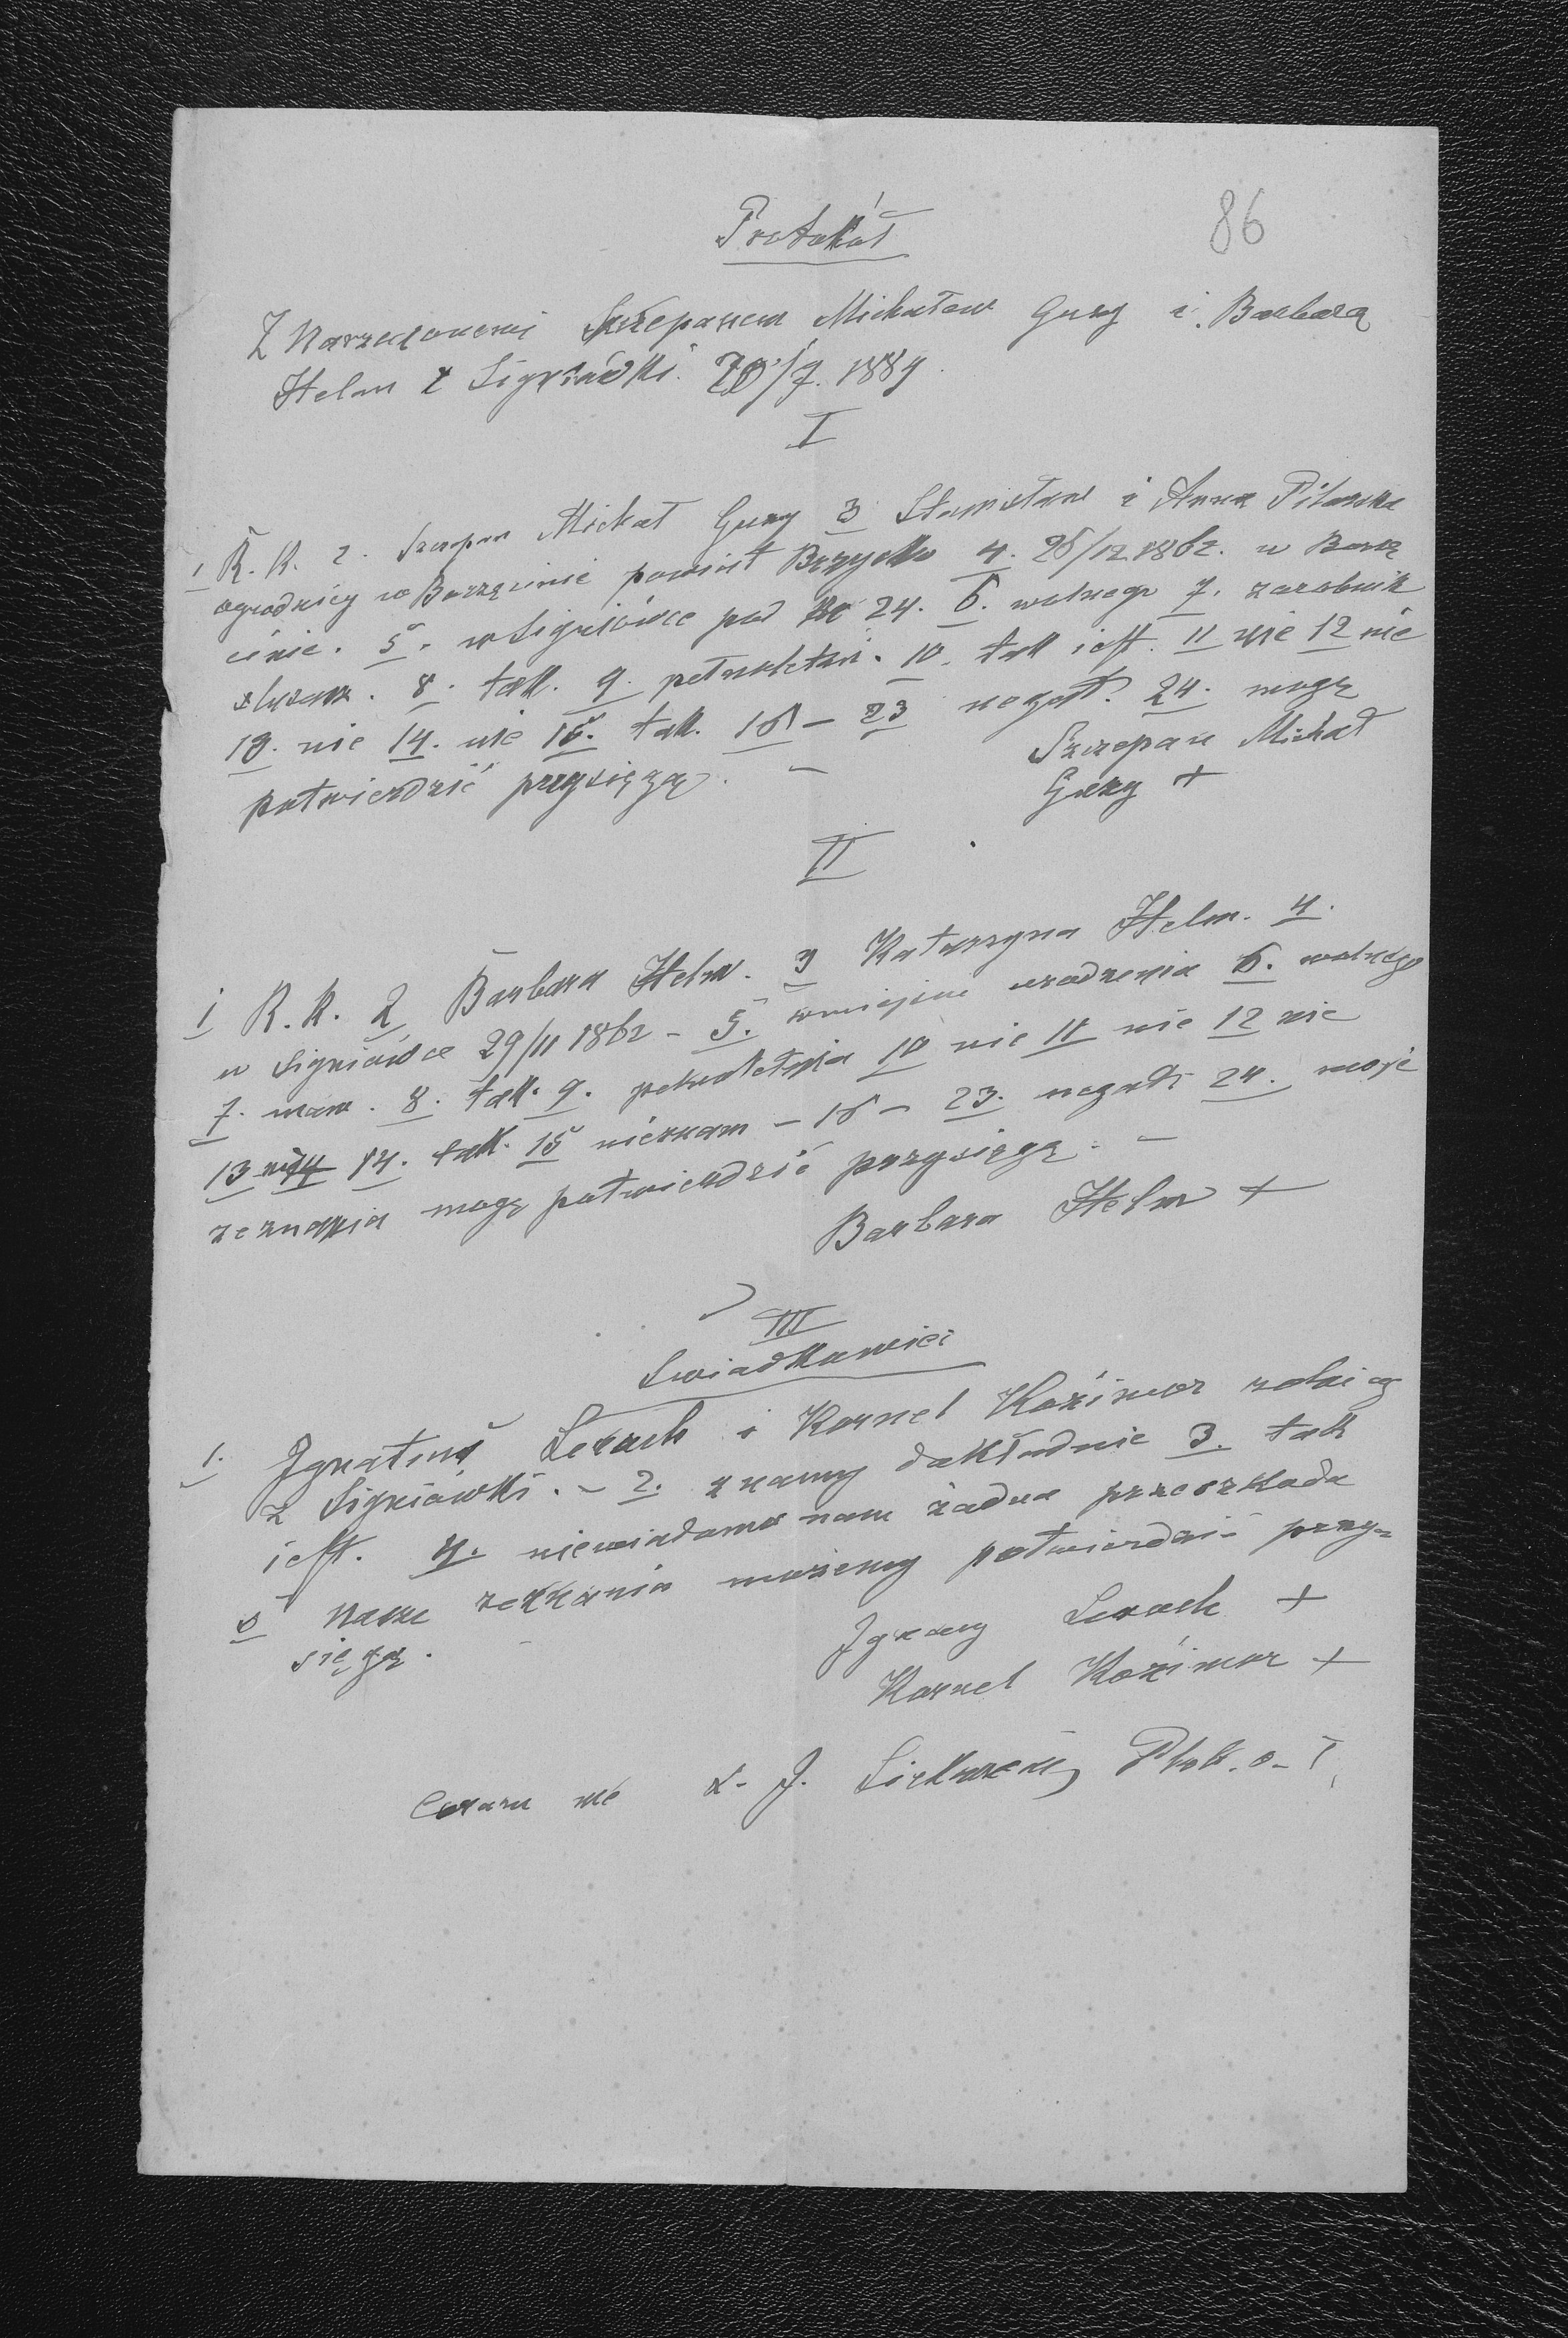 Protokół
86
Z Narzeczonemi Szczepanem Michałem Guzy i Barbarą
Helm z Signiówki. 20/7. 1889
I
1 R. K. 2. Szczepan Michał Guzy 3 Stanisław i Anna Pilarska
ogrodnicy w Borzęcinie powiat Brzesko 4. 26/12 1862. w Borzę
cinie. 5. w Signiówce pod Nr 24. 6. wolnego 7. zarobnik
8. tak. 9. pełnoletni. 10. tak jest. 11 nie 12 nie
13. nie 14. nie 15. tak. 16 – 23 negat. 24. mogę
potwierdzić przysięgą. –
Szczepan Michał
Guzy +
II
1 R. K. 2 Barbara Helm. 3 Katarzyna Helm. 4.
w Signiówce 29/11 1862 – 5. w miejscu urodzenia 6. wolnego
7. mam. 8. tak. 9. pełnoletnia 10 nie 11 nie 12 nie
13 14. tak. 15 nieznam – 16 – 23. negat. 24. moje
zeznania mogę potwierdzić przysięgą. –
Barbara Helm +
III
Swiadkowie:
1. Ignatius i Kornel rolnicy
z Signiówki. – 2. znamy dokładnie 3. tak
jest. 4. niewiadoma nam żadna przeszkoda
5 nasze zeznania możemy potwierdzić przy=
sięgą. –
Ignacy +
Kornel +
Coram me X. J.